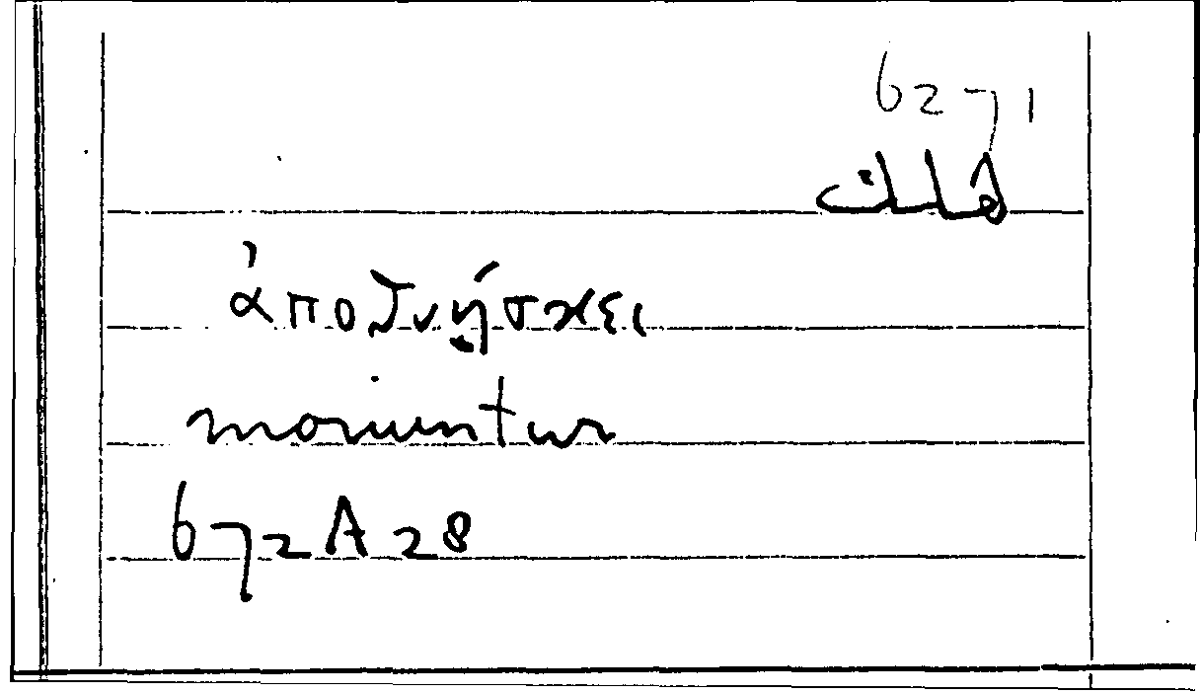 6271
هلك
ἀποθνήσκει
moriuntur
672A28